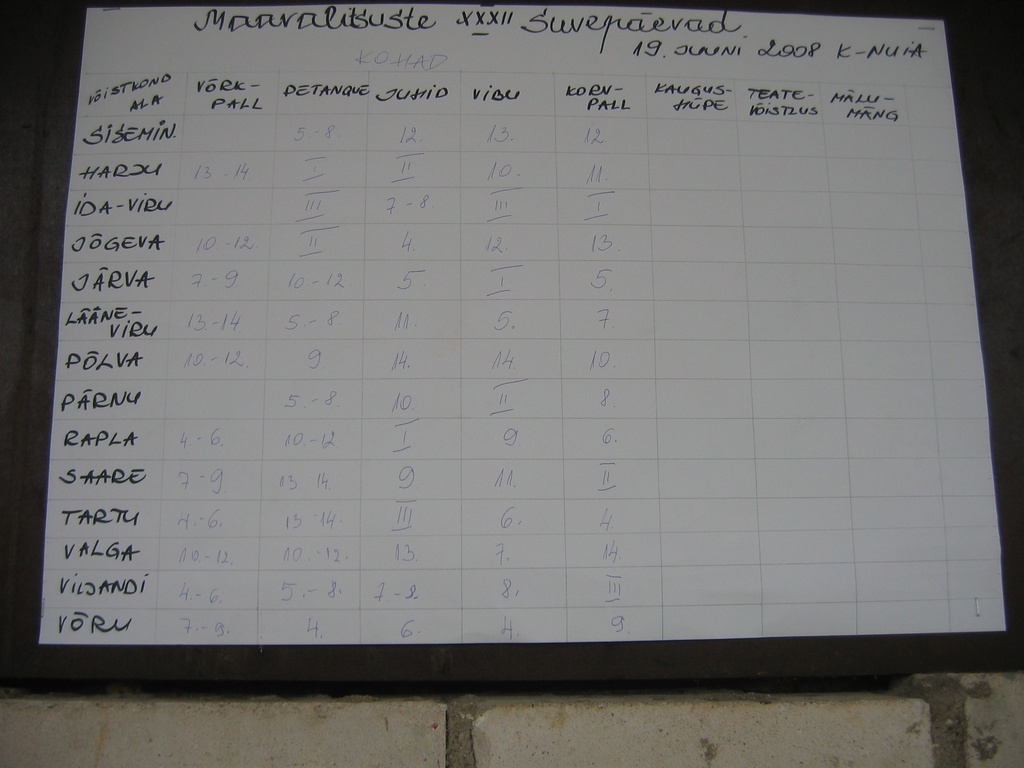 Maavalitsuste XXXII Suvepäevad
19. JUUNI 2008 K-NUIA
KOHAD
VÕISTKOND ALA VÕRK-PALL PETANQUE JUHID VIBU KORV-PALL KAUGUS-HÜPE TEATE-VÕISTLUS MÄLU-MÄNG
SISEMIN. 5.-8. 12. 13. 12.
HARJU 13-14 I II 10. 11.
IDA-VIRU III 7-8. III I
JÕGEVA 10.-12. II 4. 12. 13.
JÄRVA 7.-9 10.-12 5. I 5.
LÄÄNE-VIRU 13.-14 5.-8. 11. 5. 7.
PÕLVA 10.-12. 9 14. 14 10.
PÄRNU 5.-8. 10. II 8.
RAPLA 4.-6. 10.-12 I 9. 6.
SAARE 7-9. 13 14. 9 11. II
TARTU 4.-6. 13-14. III 6. 4.
VALGA 10.-12. 10.-12. 13. 7. 14.
VILJANDI 4.-6. 5.-8. 7-8. 8. III
VÕRU 7.-9. 4. 6. 4. 9.